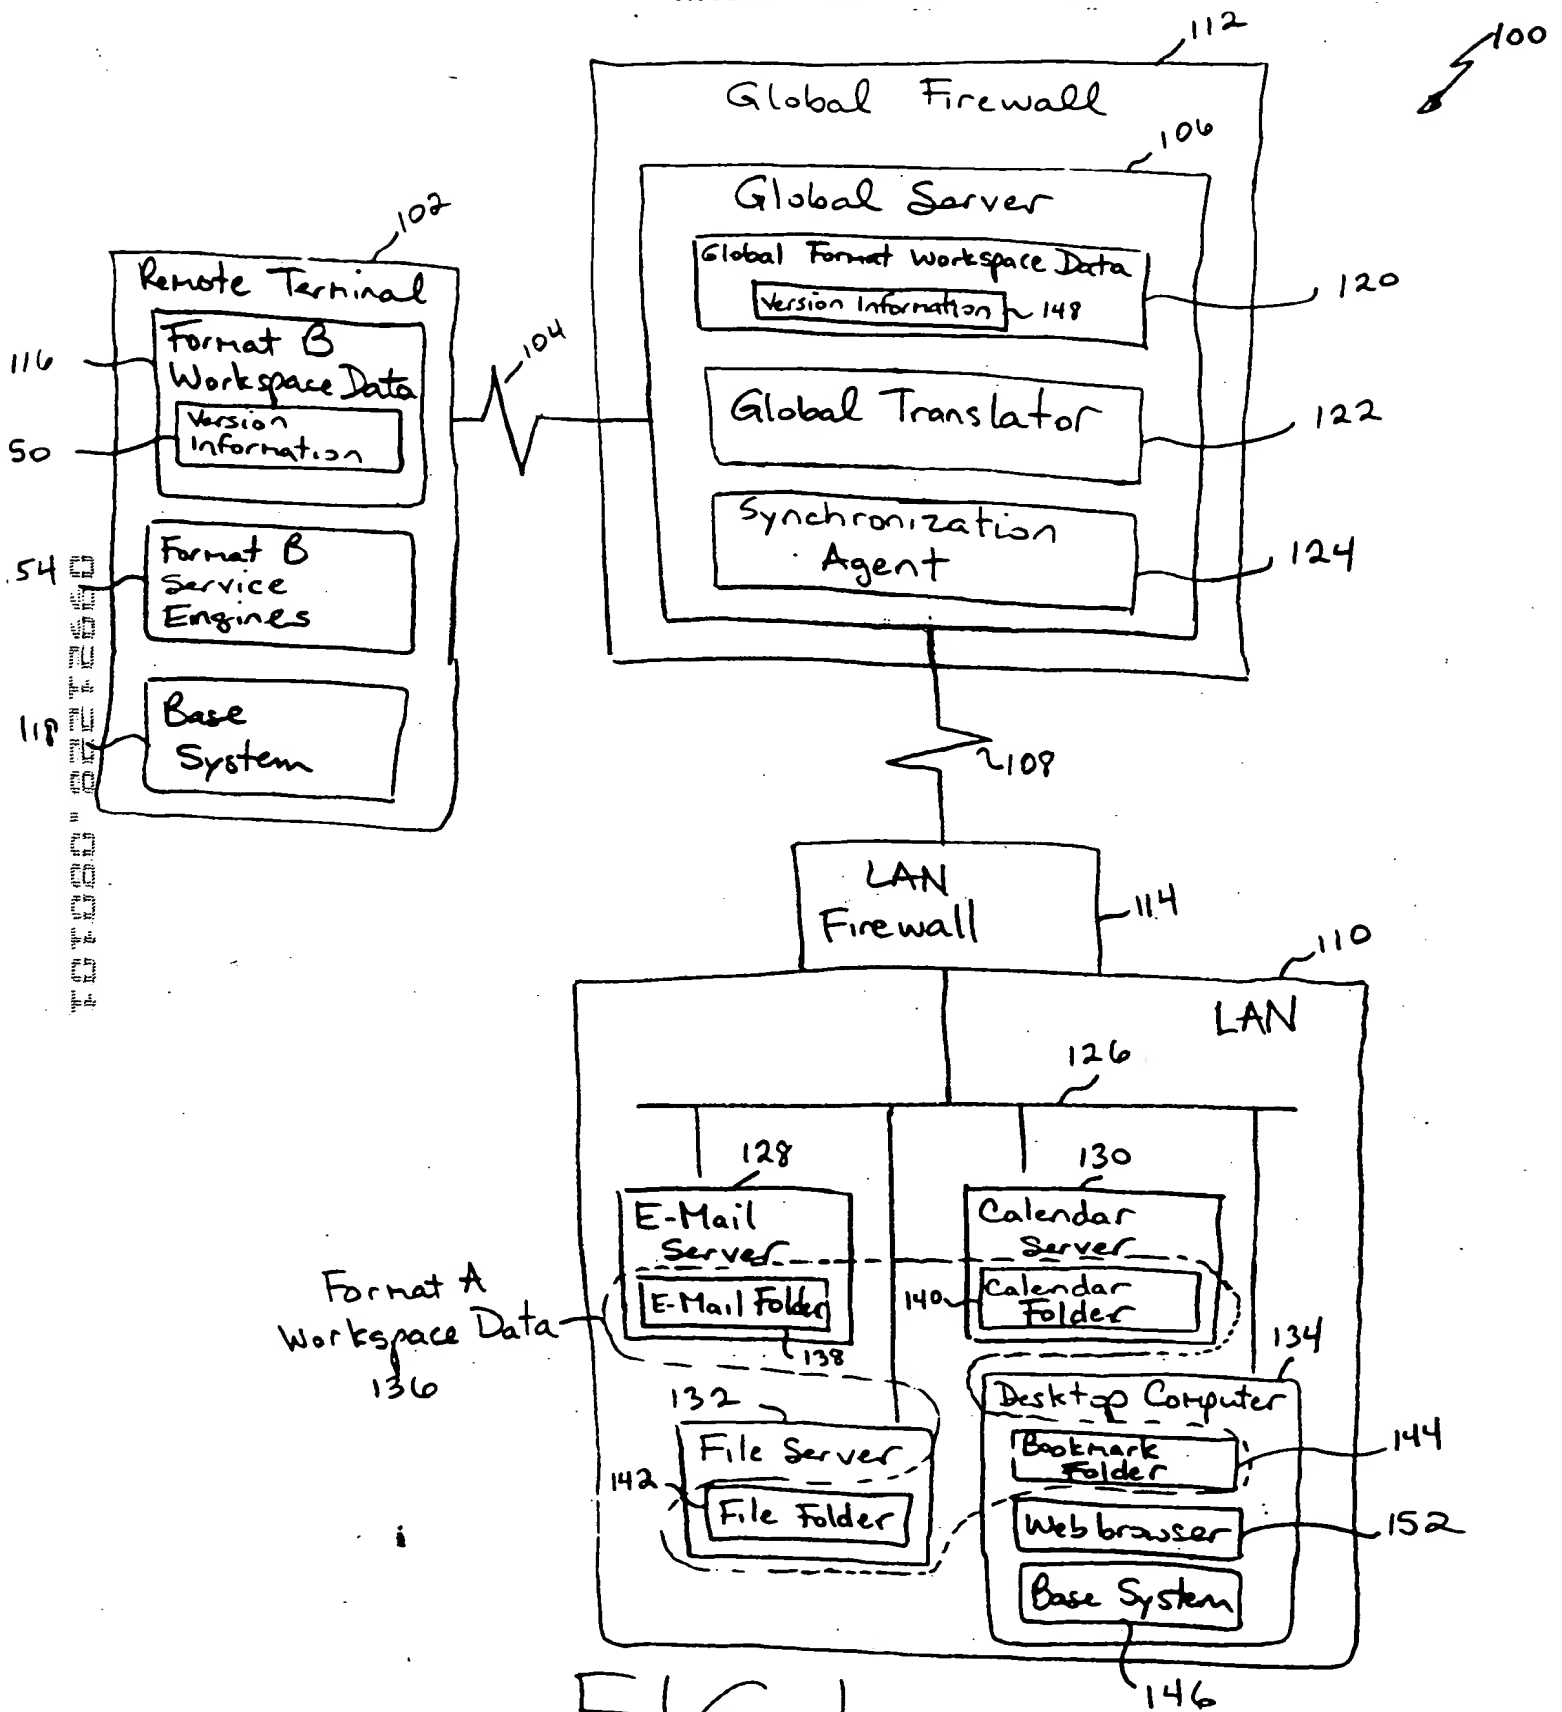 100
112
Global Firewall
106
Global Server
Global Format Workspace Data
Version Information
148
120
Global Translator
122
Synchronization
Agent
124
102
Remote Terminal
Format B
Workspace Data
116
Version
Information
50
Format B
Service
Engines
54
Base
System
118
104
108
LAN
Firewall
114
110
LAN
126
128
E-Mail
Server
E-Mail Folder
138
130
Calendar
Server
Calendar
Folder
140
Format A
Workspace Data
136
132
File Server
142
File Folder
134
Desktop Computer
Bookmark
Folder
144
Web browser
152
Base System
146